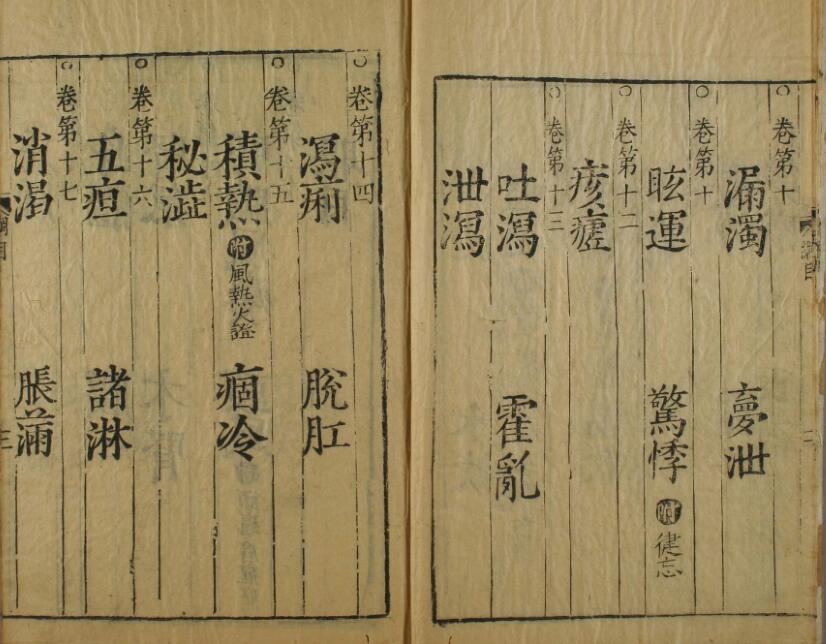 ○卷第十
漏濁 夢泄
○卷第十
眩運 驚悸 附 健忘
○卷第十二
痎瘧
○卷第十三
吐瀉 霍亂
泄瀉
○卷第十四
瀉痢 脫肛
○卷第十五
積熱 附 風熱火證 痼冷
秘澁
○卷第十六
五疸 諸淋
○卷第十七
消渴 脹滿